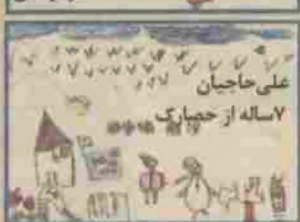 علی حاجیان
۷ساله از حصارک